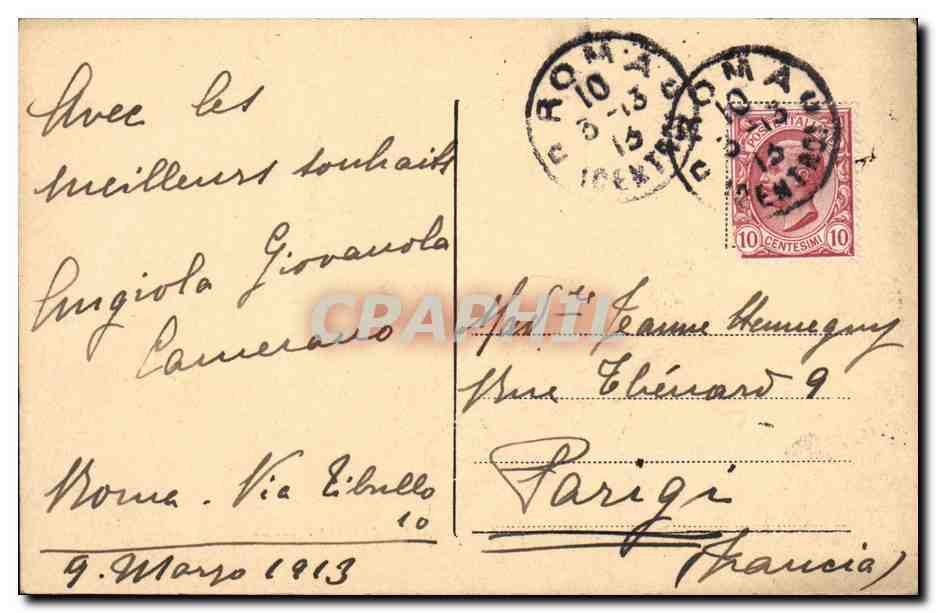 Avec les
meilleurs souhaits
Angiola Giovanola
Camerano
Roma. Via Tibullo
10
9. Marzo 1913
ROMA
10
3-13
13
CENTRO
ROMA
10
13
CENTRO
POSTE ITALIANE
10 CENTESIMI 10
CPARHIL
Mad.lle Jeanne Henneguy
Rue Thénard 9
Parigi
(Francia)